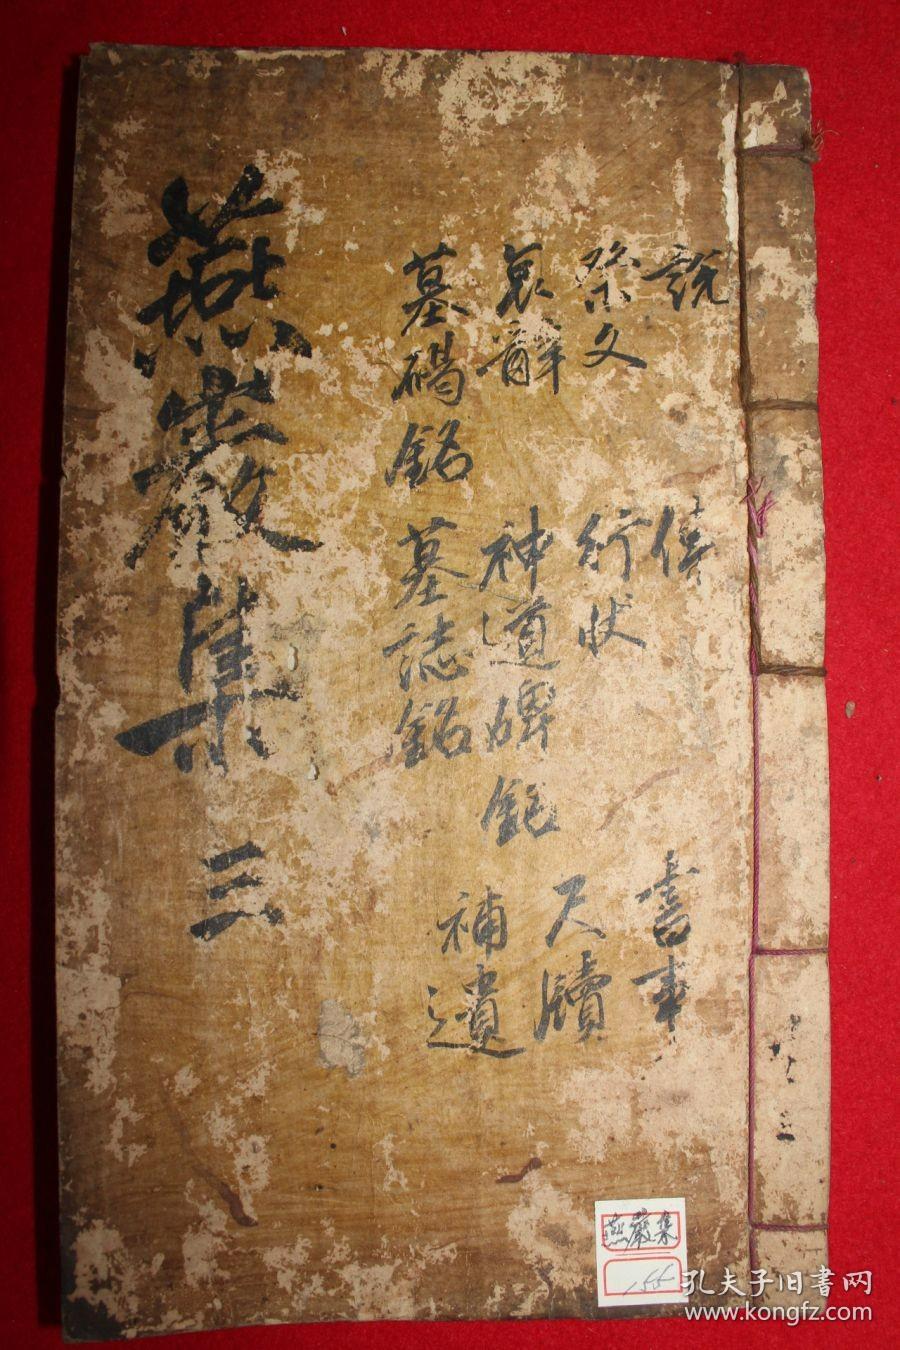 燕巖集 三
說 傳 書事
祭文 行狀 尺牘
哀辭 神道碑銘 補遺
墓碣銘 墓誌銘
共三
燕巖集
155
孔夫子旧書网
www.kongfz.com